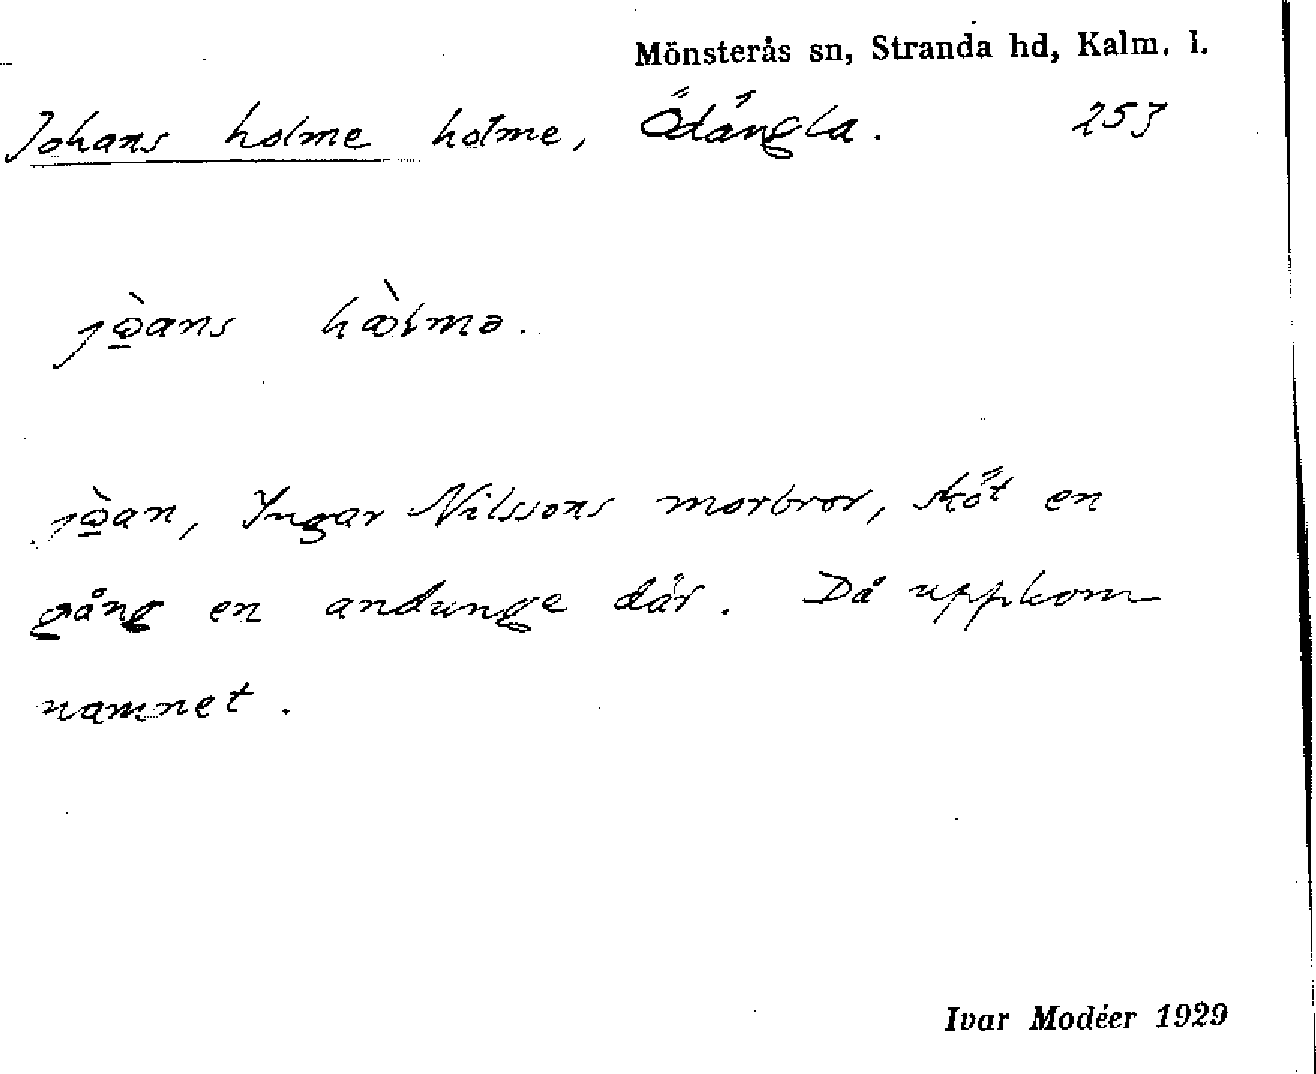 Mönsterås sn, Stranda hd, Kalm. l.
Johans holme holme, Ödängla. 253
jò̱ans hòlmə.
jò̱an, Ingar Nilssons morbror, sköt en
gång en andunge där. Då uppkom
namnet.
Ivar Modéer 1929